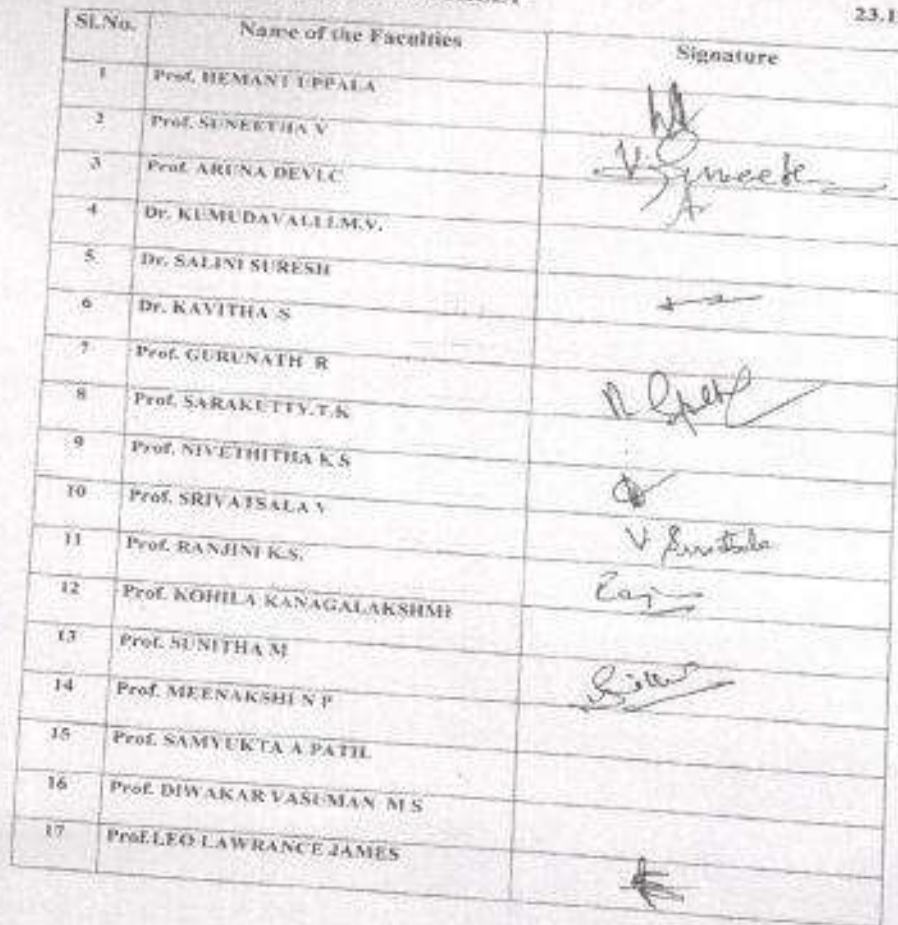 23.1
Sl.No. Name of the Faculties Signature
1 Prof. HEMANT UPPALA
2 Prof. SUNEETHA V V. Suneetha
3 Prof. ARUNA DEVI.C
4 Dr. KUMUDAVALLI.M.V.
5. Dr. SALINI SURESH
6 Dr. KAVITHA S
7 Prof. GURUNATH R
8 Prof. SARAKUTTY.T.K
9 Prof. NIVETHITHA K.S
10 Prof. SRIVATSALA V V
11 Prof. RANJINI K.S.
12 Prof. KOHILA KANAGALAKSHMI
13 Prof. SUNITHA M
14 Prof. MEENAKSHI N P
15 Prof. SAMYUKTA A PATIL
16 Prof. DIWAKAR VASUMAN M S
17 Prof.LEO LAWRANCE JAMES